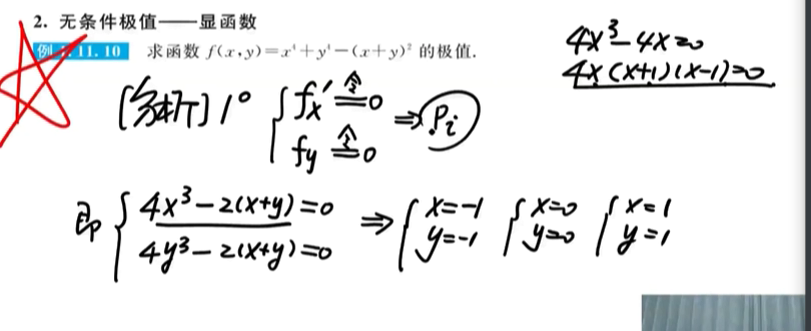 2. 无条件极值——显函数
例 11.10 求函数 f(x,y)=x⁴+y⁴-(x+y)² 的极值.
4x³-4x=0
4x(x+1)(x-1)=0
[分析] 1° { f'x 令= 0 ⇒ Pi
f'y 令= 0
即 { 4x³-2(x+y)=0 ⇒ { x=-1 { x=0 { x=1
4y³-2(x+y)=0 y=-1 y=0 y=1